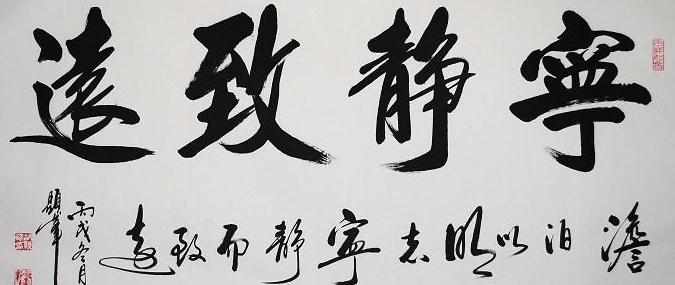 寧靜致遠
澹泊以明志寧靜而致遠
丙戌冬月